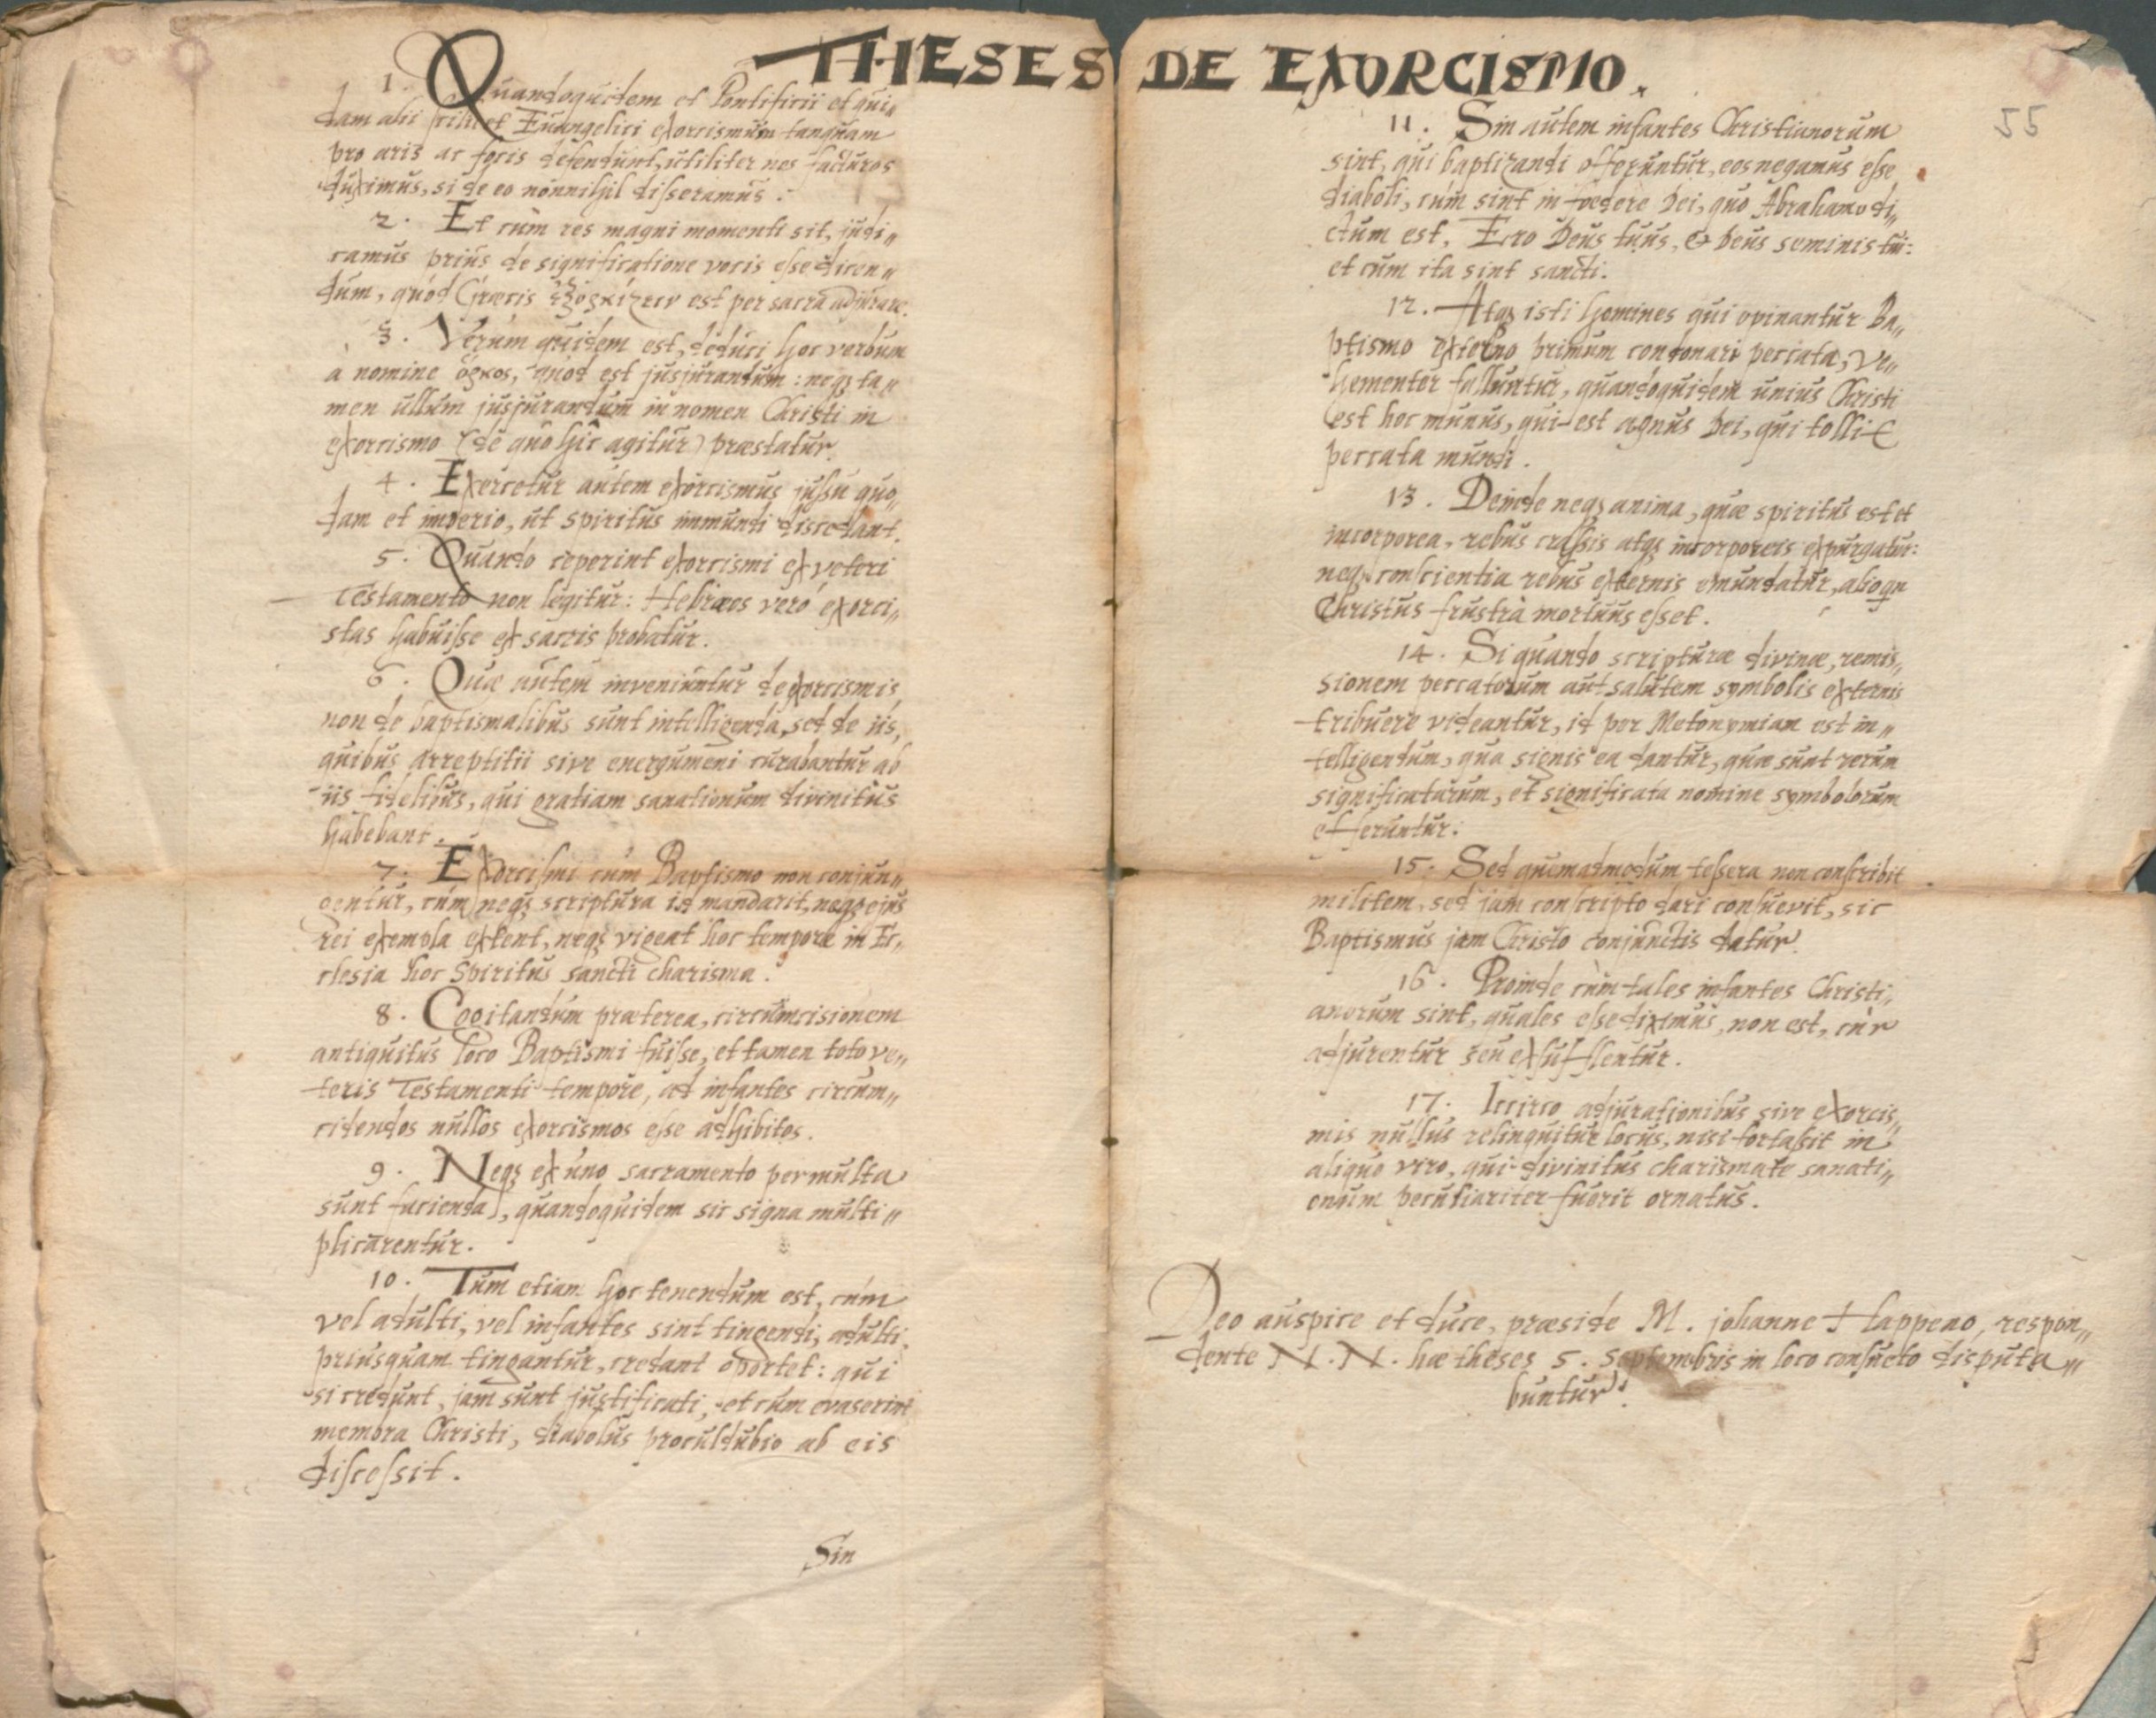 THESES DE EXORCISMO.
1. Quandoquidem et Pontificii et qui„
dam alii scilicet Euangelici exorcismum tanquam
pro aris ac focis defendunt, utiliter nos facturos
duximus, si de eo nonnihil disseramus.
2. Et cùm res magni momenti sit, judi„
camus priùs de significatione vocis esse dicen„
dum, quòd Græcis ἐξορκίζειν est per sacra adjurare.
3. Verùm quidem est, deduci hoc verbum
à nomine ὅρκος, quod est jusjurandum: neqꝫ ta„
men ullum jusjurandum in nomen Christi in
exorcismo (de quo hîc agitur) præstatur.
4. Exercetur autem exorcismus jussu quo„
dam et imperio, ut spiritus immundi discedant.
5. Quando ceperint exorcismi ex veteri
Testamento non legitur: Hebræos verò exorci„
stas habuisse ex sacris probatur.
6. Quæ autem inveniuntur de exorcismis,
non de baptismalibus sunt intelligenda, sed de iis,
quibus arreptitii sive energumeni curabantur ab
iis fidelibus, qui gratiam sanationum divinitùs
habebant.
7. Exorcismi cum Baptismo non conjun„
gentur, cùm neqꝫ scriptura id mandarit, neqꝫ ejus
rei exempla extent, neqꝫ vigeat hoc tempore in Ec„
clesia hoc Spiritus sancti charisma.
8. Cogitandum præterea, circumcisionem
antiquitus loco Baptismi fuisse, et tamen toto ve„
teris Testamenti tempore, ad infantes circum„
cidendos nullos exorcismos esse adhibitos.
9. Neqꝫ ex uno sacramento permulta
sunt facienda, quandoquidem sic signa multi„
plicarentur.
10. Tum etiam hoc tenendum est, cùm
vel adulti, vel infantes sint tingendi, adulti,
priusquam tingantur, credant oportet: qui
si credunt, jam sunt justificati, et cum evaserint
membra Christi, diabolus proculdubio ab eis
discessit.
Sin
55
11. Sin autem infantes Christianorum
sint, qui baptizandi offeruntur, eos negamus esse
diaboli, cùm sint in foedere Dei, quo Abrahamo di„
ctum est, Ero Deus tuus, & Deus seminis tui:
et cum ita sint sancti.
12. Atqꝫ isti homines qui opinantur Ba„
ptismo externo primùm condonari peccata, ve„
hementer falluntur, quandoquidem unius Christi
est hoc munus, qui est agnus Dei, qui tollit
peccata mundi.
13. Deinde neqꝫ anima, quæ spiritus est et
incorporea, rebus crassis atqꝫ incorporeis expurgatur:
neqꝫ conscientia rebus externis emundatur, alioqu
Christus frustrà mortuus esset.
14. Si quando scripturæ divinæ, remis„
sionem peccatorum aut salutem symbolis externis
tribuere videantur, id per Metonymiam est in„
telligendum, qua signis ea dantur, quæ sunt rerum
significatarum, et significata nomine symbolorum
efferuntur.
15. Sed quemadmodum tessera non conscribit
militem, sed jam conscripto dari consuevit, sic
Baptismus jam Christo conjunctis datur.
16. Proinde cùm tales infantes Christi„
anorum sint, quales esse diximus, non est, cùr
adjurentur seu exsufflentur.
17. Iccirco adjurationibus sive exorcis„
mis nullus relinquitur locus, nisi fortassit in
aliquo viro, qui divinitus charismate sanati„
onum peculiariter fuerit ornatus.
Deo auspice et duce, præside M. johanne Flappeao, respon„
dente N. N. hæ theses 5. Septembris in loco consueto disputa„
buntur.